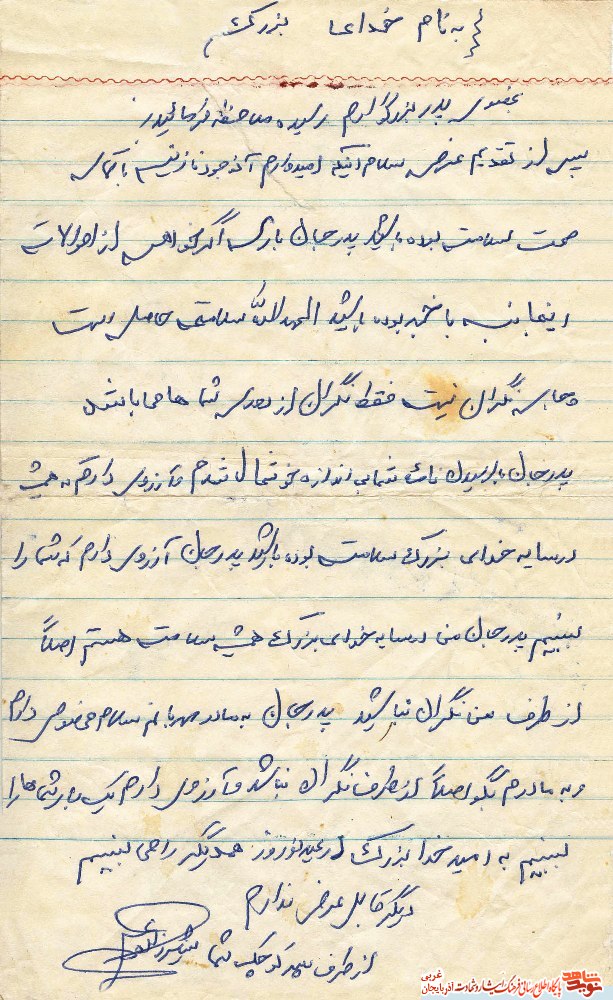 به نام خدای بزرگ
بحضور پدر بزرگوارم رسیده ملاحظه فرمائید
پس از تقدیم عرض سلام اینکه امیدوارم آن خود نازنینت با کمال
صحت سلامت بوده باشید پدر جان باری اگر خواهی از احوالات
اینجانب با خبر بوده باشید الحمدالله سلامتی حاصل است
و جای نگرانی نیست فقط نگران از دوری شما ها می باشد
پدر جان با رسیدن نامه شما بی اندازه خوشحال شدم و آرزوی دارم که همیشه
در سایه خدای بزرگ سلامت بوده باشید پدر جان آرزوی دارم که شما را
ببینیم پدر جان من در سایه خدای بزرگ همیشه سلامت هستم اصلاً
از طرف من نگران نباشید پدر جان به مادر مهربانم سلام مخصوص دارم
و به مادرم بگو اصلاً از طرف نگران نباشد و آرزوی دارم یک بار شماها را
ببینیم به امید خدا بزرگ در عید نوروز همدیگر را می بینیم
دیگر قابل عرض ندارم
از طرف پسر کوچک شما
نوید شاهد
پایگاه اطلاع رسانی فرهنگ ایثار و شهادت آذربایجان غربی